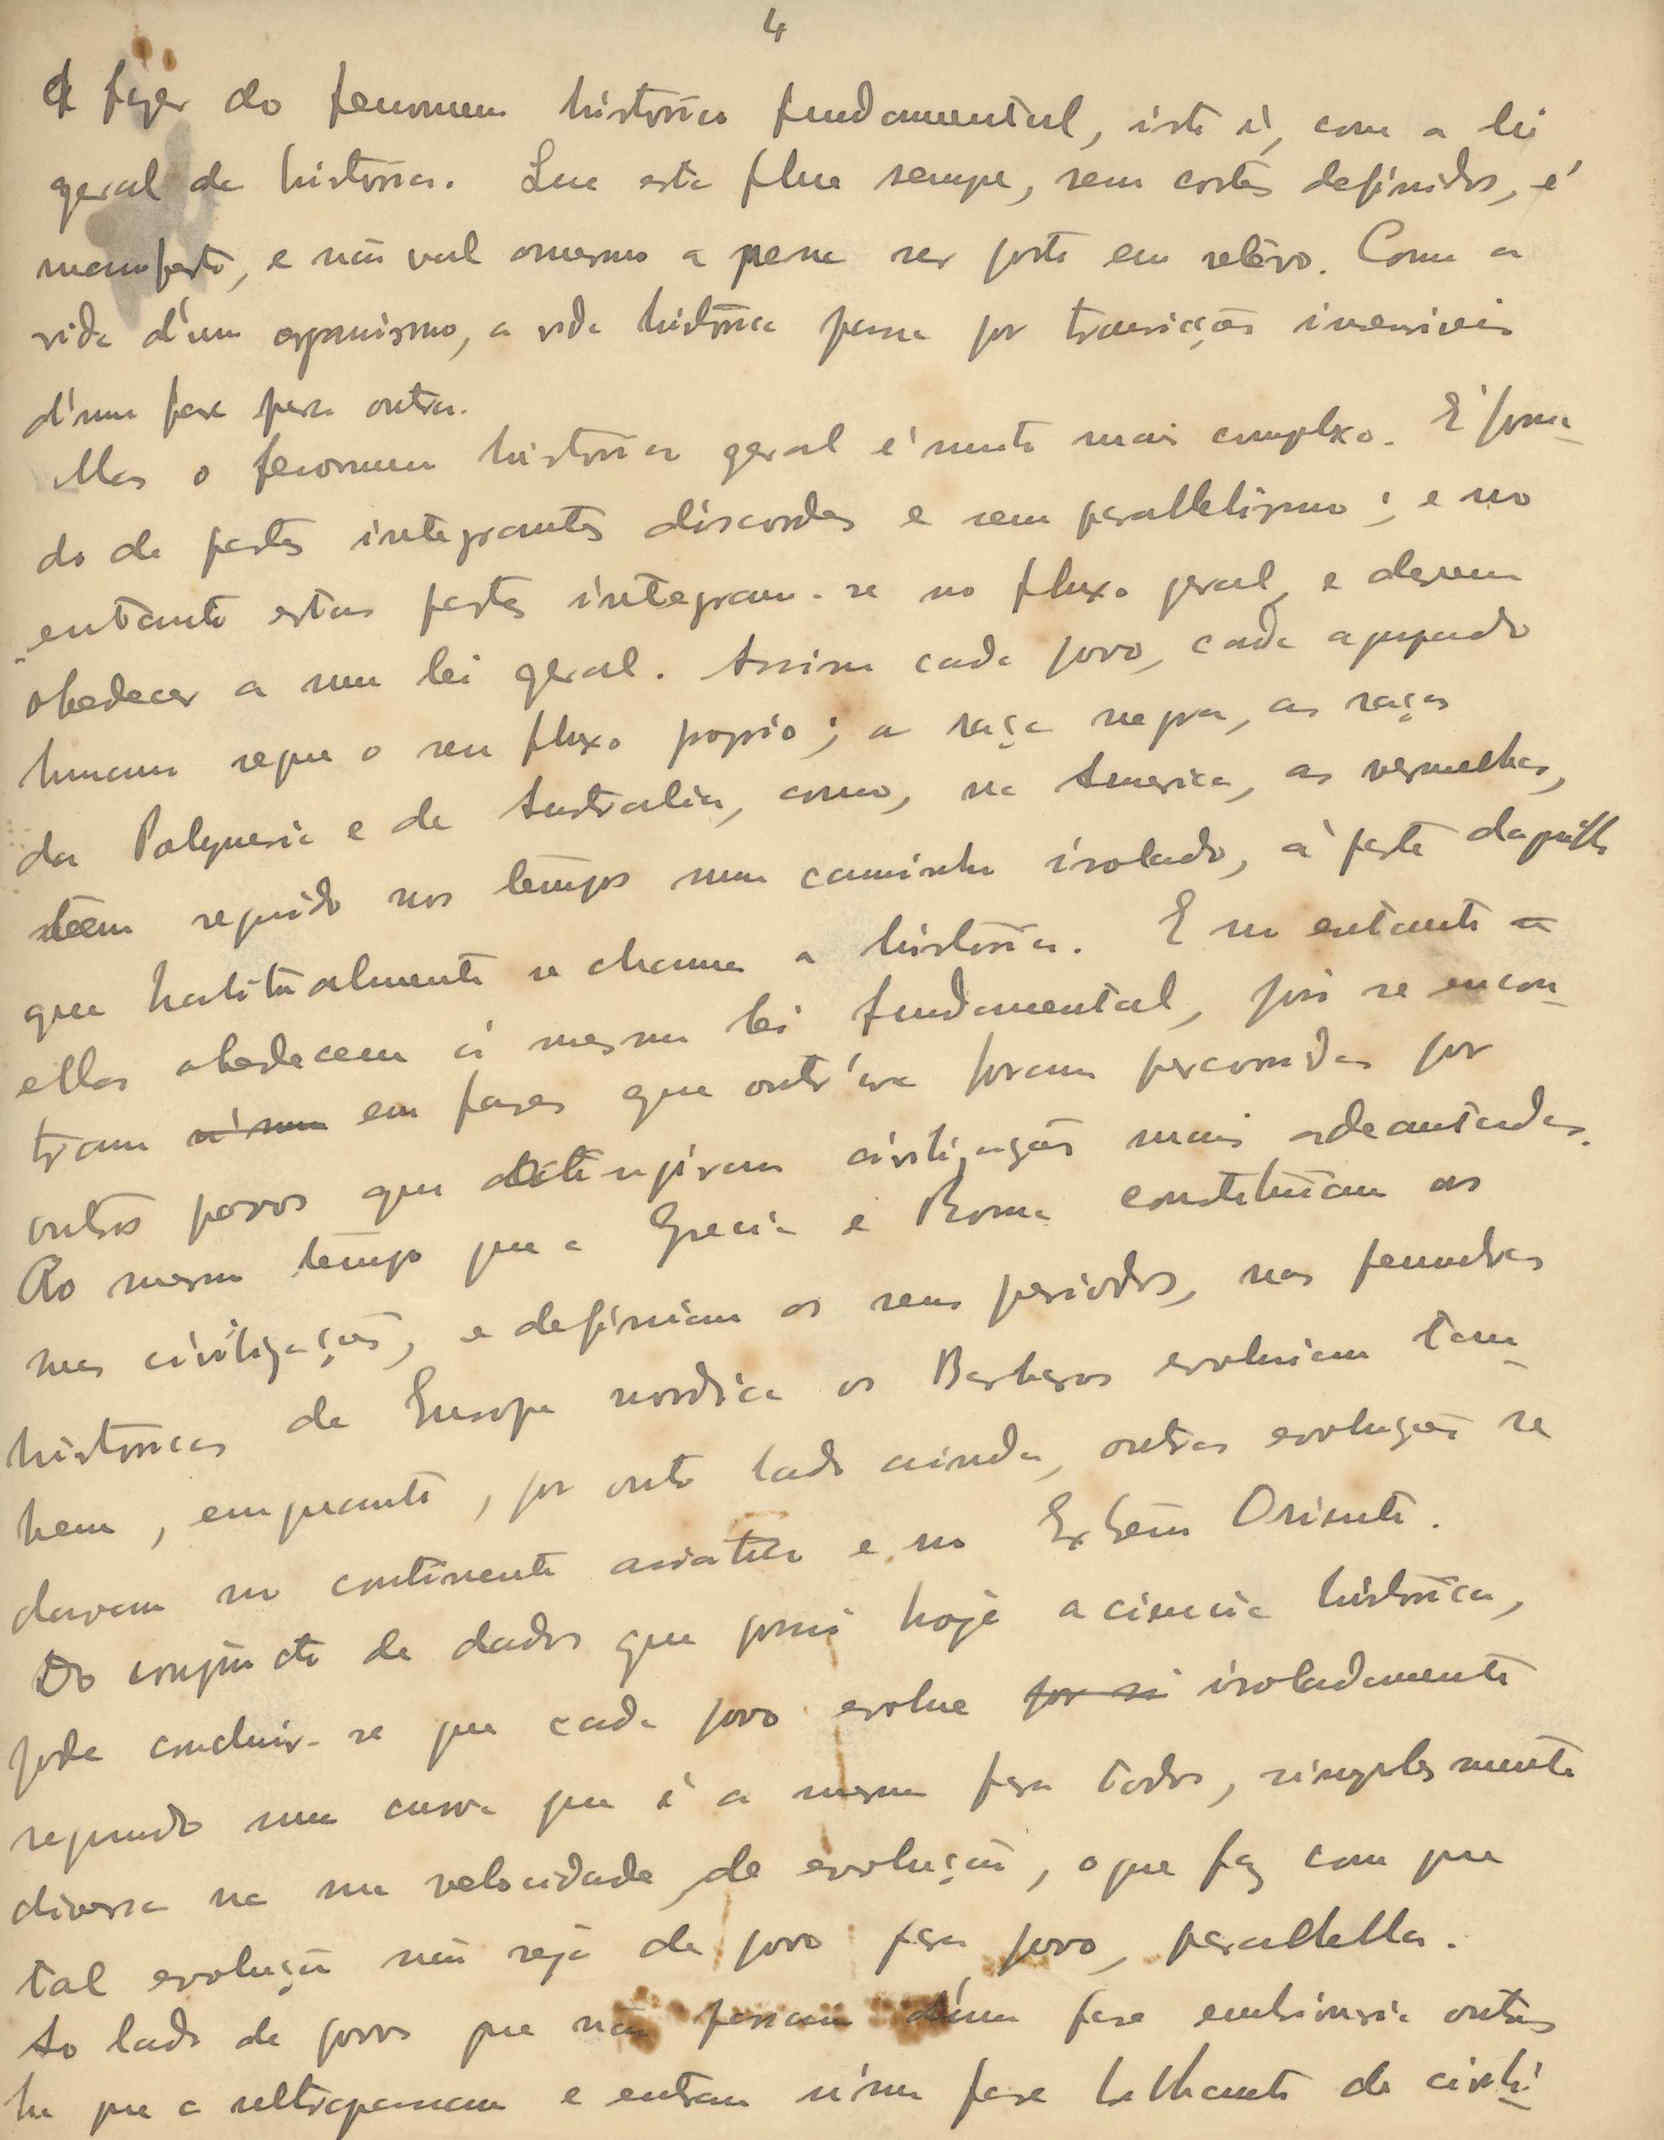 4
a fazer do fenomeno historico fundamental, isto é, com a lei
geral da historia. Que esta flue sempre, sem cortes definidos, é
manifesto, e não val mesmo a pena ser posto em relêvo. Como a
vida d'um organismo, a vida histórica passa por transições insensiveis
d'uma fase para outra.
Mas o fenomeno historico geral é muito mais complexo. É forma-
do de partes integrantes discordes e sem parallelismo; e no
entanto estas partes integram-se no fluxo geral, e devem
obedecer a uma lei geral. Assim cada povo, cada agregado
humano segue o seu fluxo proprio; a raça negra, as raças
da Polynesia e da Australia, como, na America, as vermelhas,
têem seguido nos tempos um caminho isolado, à parte daquillo
que habitualmente se chama a historia. E no entanto
ellas obedecem á mesma lei fundamental, pois se encon-
tram n'uma em fases que outr'ora foram percorridas por
outros povos que attingiram civilizações mais adeantadas.
Ao mesmo tempo que a Grecia e Roma constituiam as
suas civilizações, e definiam os seus periodos, nas penumbras
historicas da Europa nordica os Barbaros evoluiam tam-
bem, emquanto, por outro lado ainda, outras evoluções se
davam no continente asiatico e no Extremo Oriente.
Do conjuncto de dados que possui hoje a ciencia histórica,
pode concluir-se que cada povo evolue por si isoladamente
segundo uma curva que é a mesma para todos, simplesmente
diversa na sua velocidade de evolução, o que faz com que
tal evolução não seja de povo para povo, parallella.
Ao lado de povos que não passam d'uma fase embrionaria outros
ha que a ultrapassam e entram n'uma fase brilhante de civili-